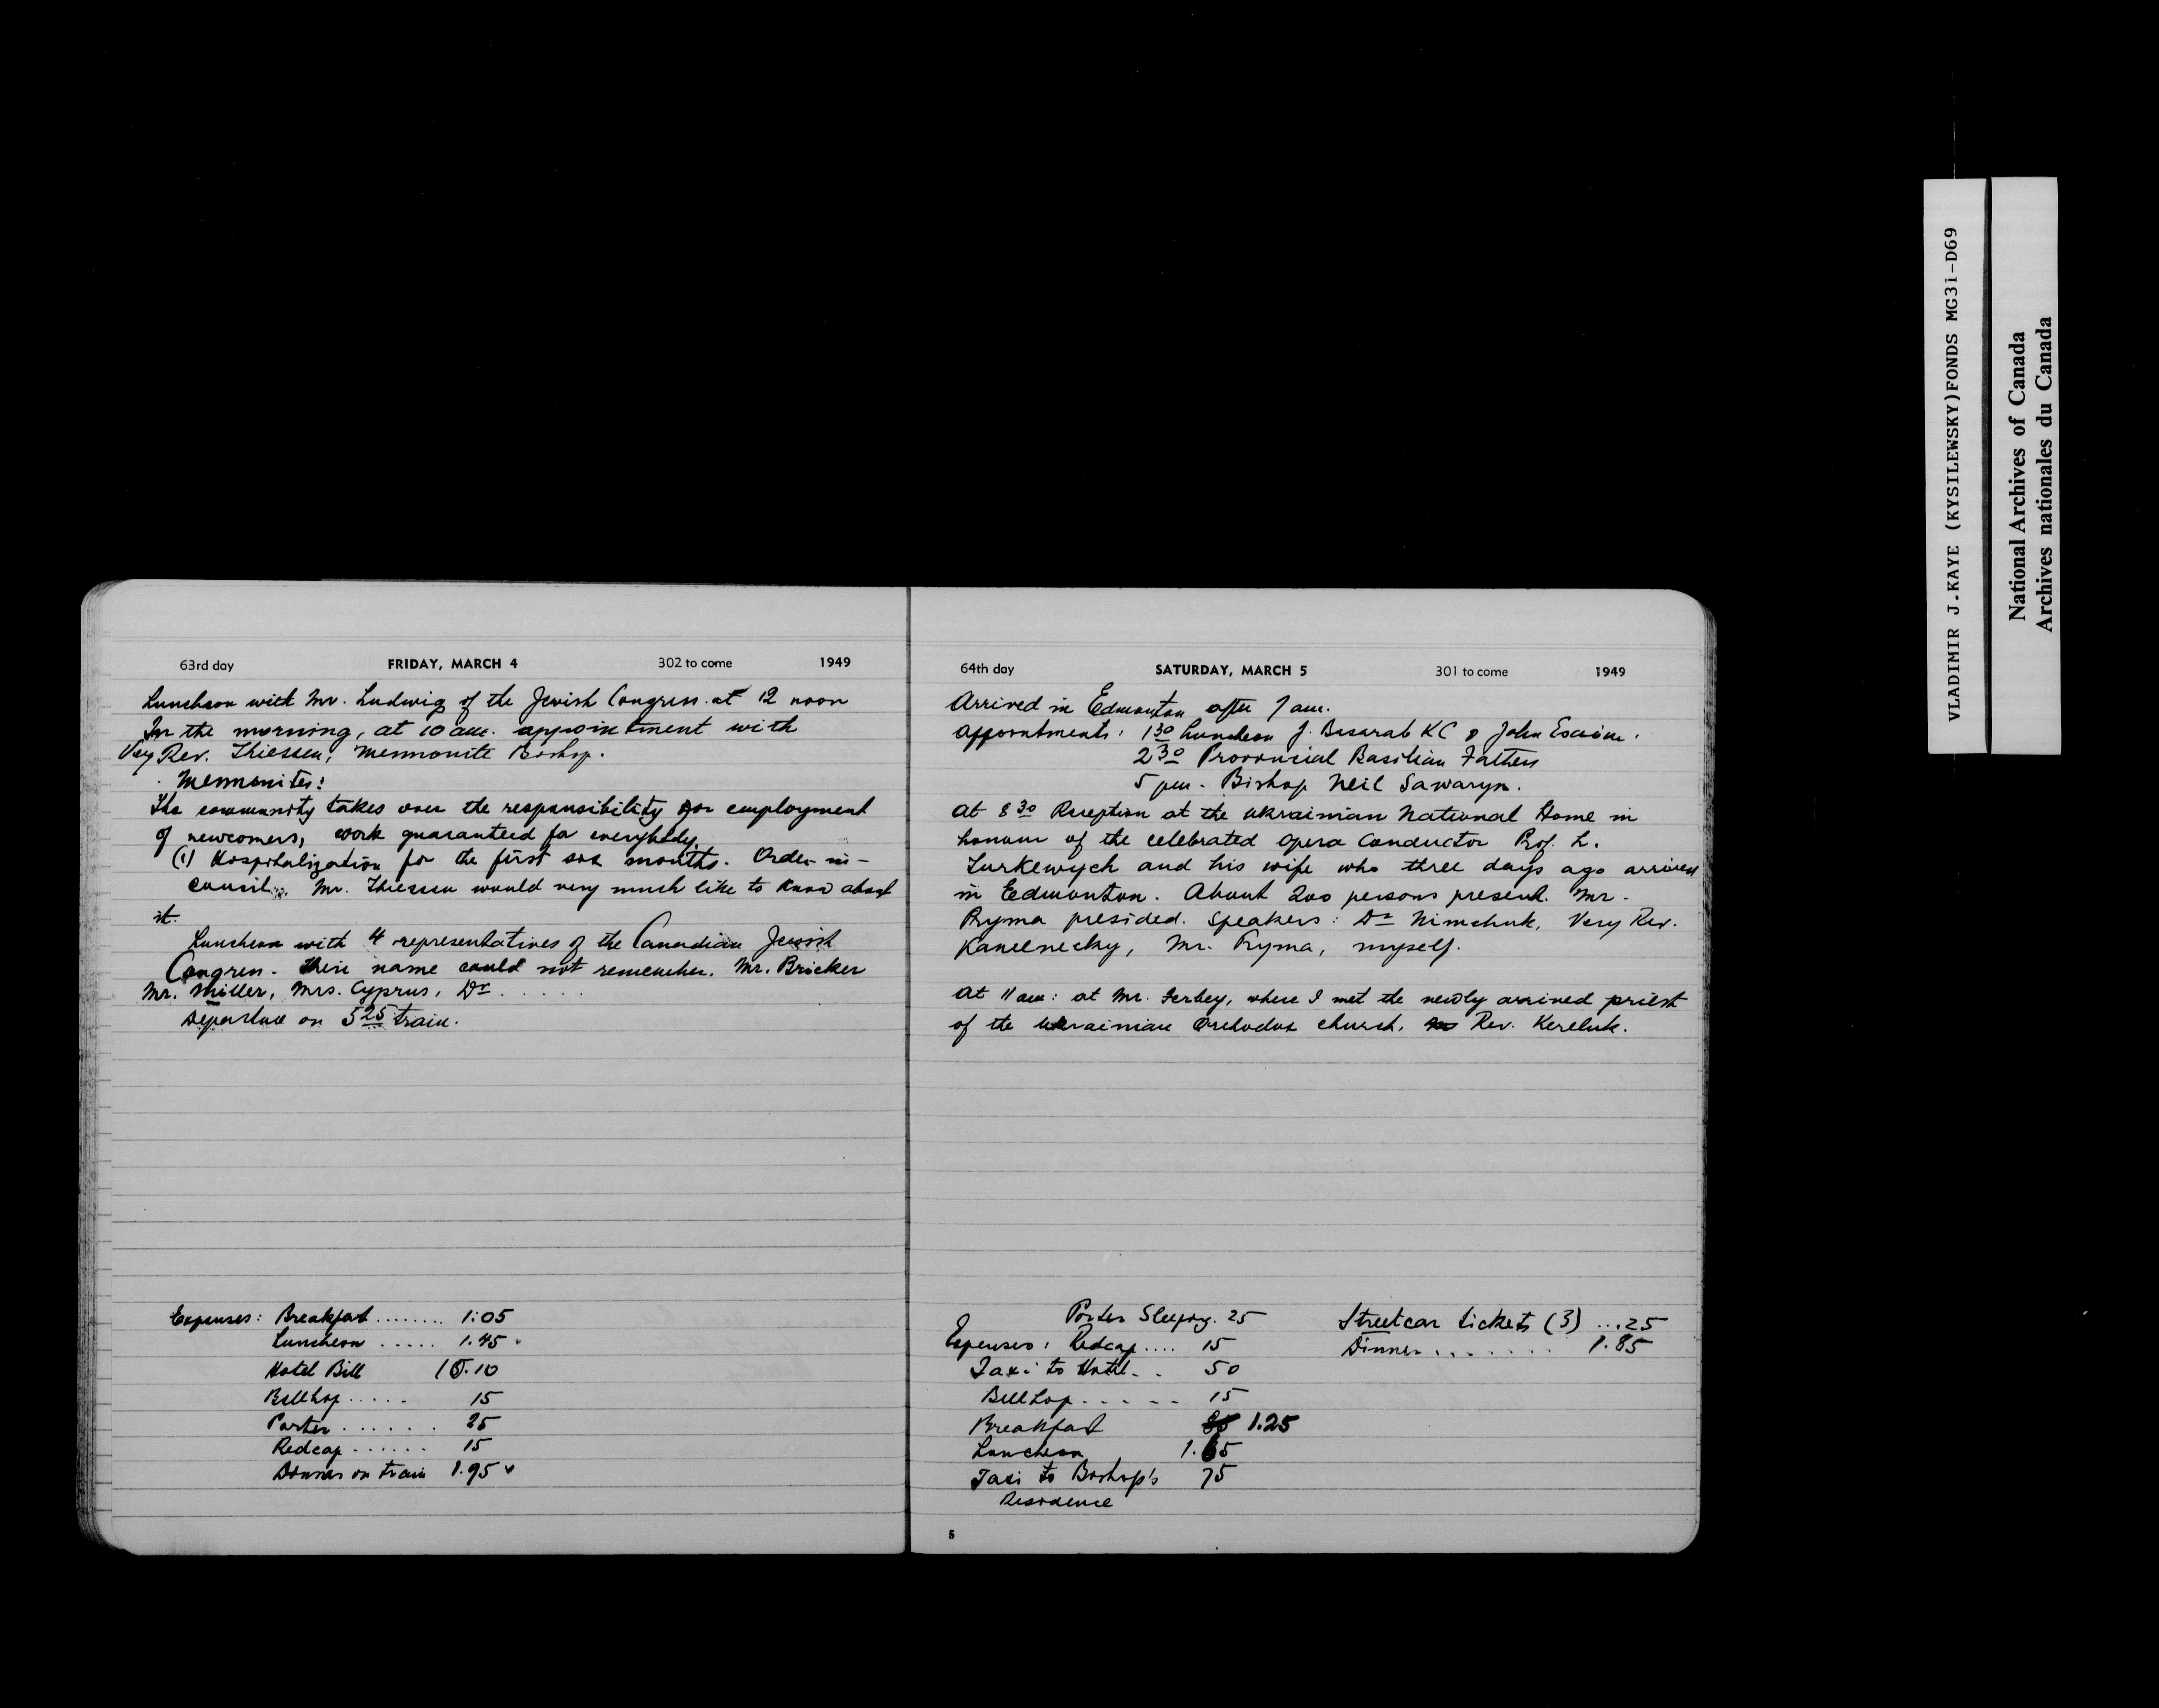 63rd day FRIDAY, MARCH 4 302 to come 1949
Luncheon with Mr. Ludwig of the Jewish Congress at 12 noon
In the morning, at 10 am. appointment with
Very Rev. Thiessen, Mennonite Bishop.
Mennonites:
The community takes over the responsibility for employment
of newcomers, work guaranteed for everybody.
(1) Hospitalization for the first six months. Order-in-
council. Mr. Thiessen would very much like to know about
it.
Luncheon with 4 representatives of the Canadian Jewish
Congress. Their name could not remember. Mr. Bricker
Mr. Miller, Mrs. Cyprus, Dr. . . . . .
Departure on 5 25 train.
Expenses: Breakfast ........ 1:05
Luncheon ..... 1.45
Hotel Bill 15.10
Bellhop ..... 15
Porter ...... 25
Redcap ...... 15
Dinner on train 1.95
64th day SATURDAY, MARCH 5 301 to come 1949
Arrived in Edmonton after 7 am.
Appointments: 1 30 Luncheon J. Basarab KC & John
2 30 Provincial Basilian Fathers
5 pm. Bishop Neil Sawaryn.
At 8 30 Reception at the Ukrainian National Home in
honour of the celebrated opera conductor Prof. L.
Turkewych and his wife who three days ago arrived
in Edmonton. About 200 persons present. Mr.
Pryma presided. Speakers: Dr Nimchuk, Very Rev.
Kanelnecky, Mr. Pryma, myself.
At 11 am: at Mr. Ferbey, where I met the newly arrived priest
of the Ukrainian Orthodox church, Rev. Kereluk.
Porter Sleeping. 25
Expenses: Redcap .... 15
Taxi to Hotel . . 50
Bellhop . . . . . 15
Breakfast 1.25
Luncheon 1.65
Taxi to Bishop's 75
Residence
Streetcar tickets (3) ...25
Dinner ........ 1.85
5
VLADIMIR J.KAYE (KYSILEWSKY)FONDS MG31-D69
National Archives of Canada
Archives nationales du Canada